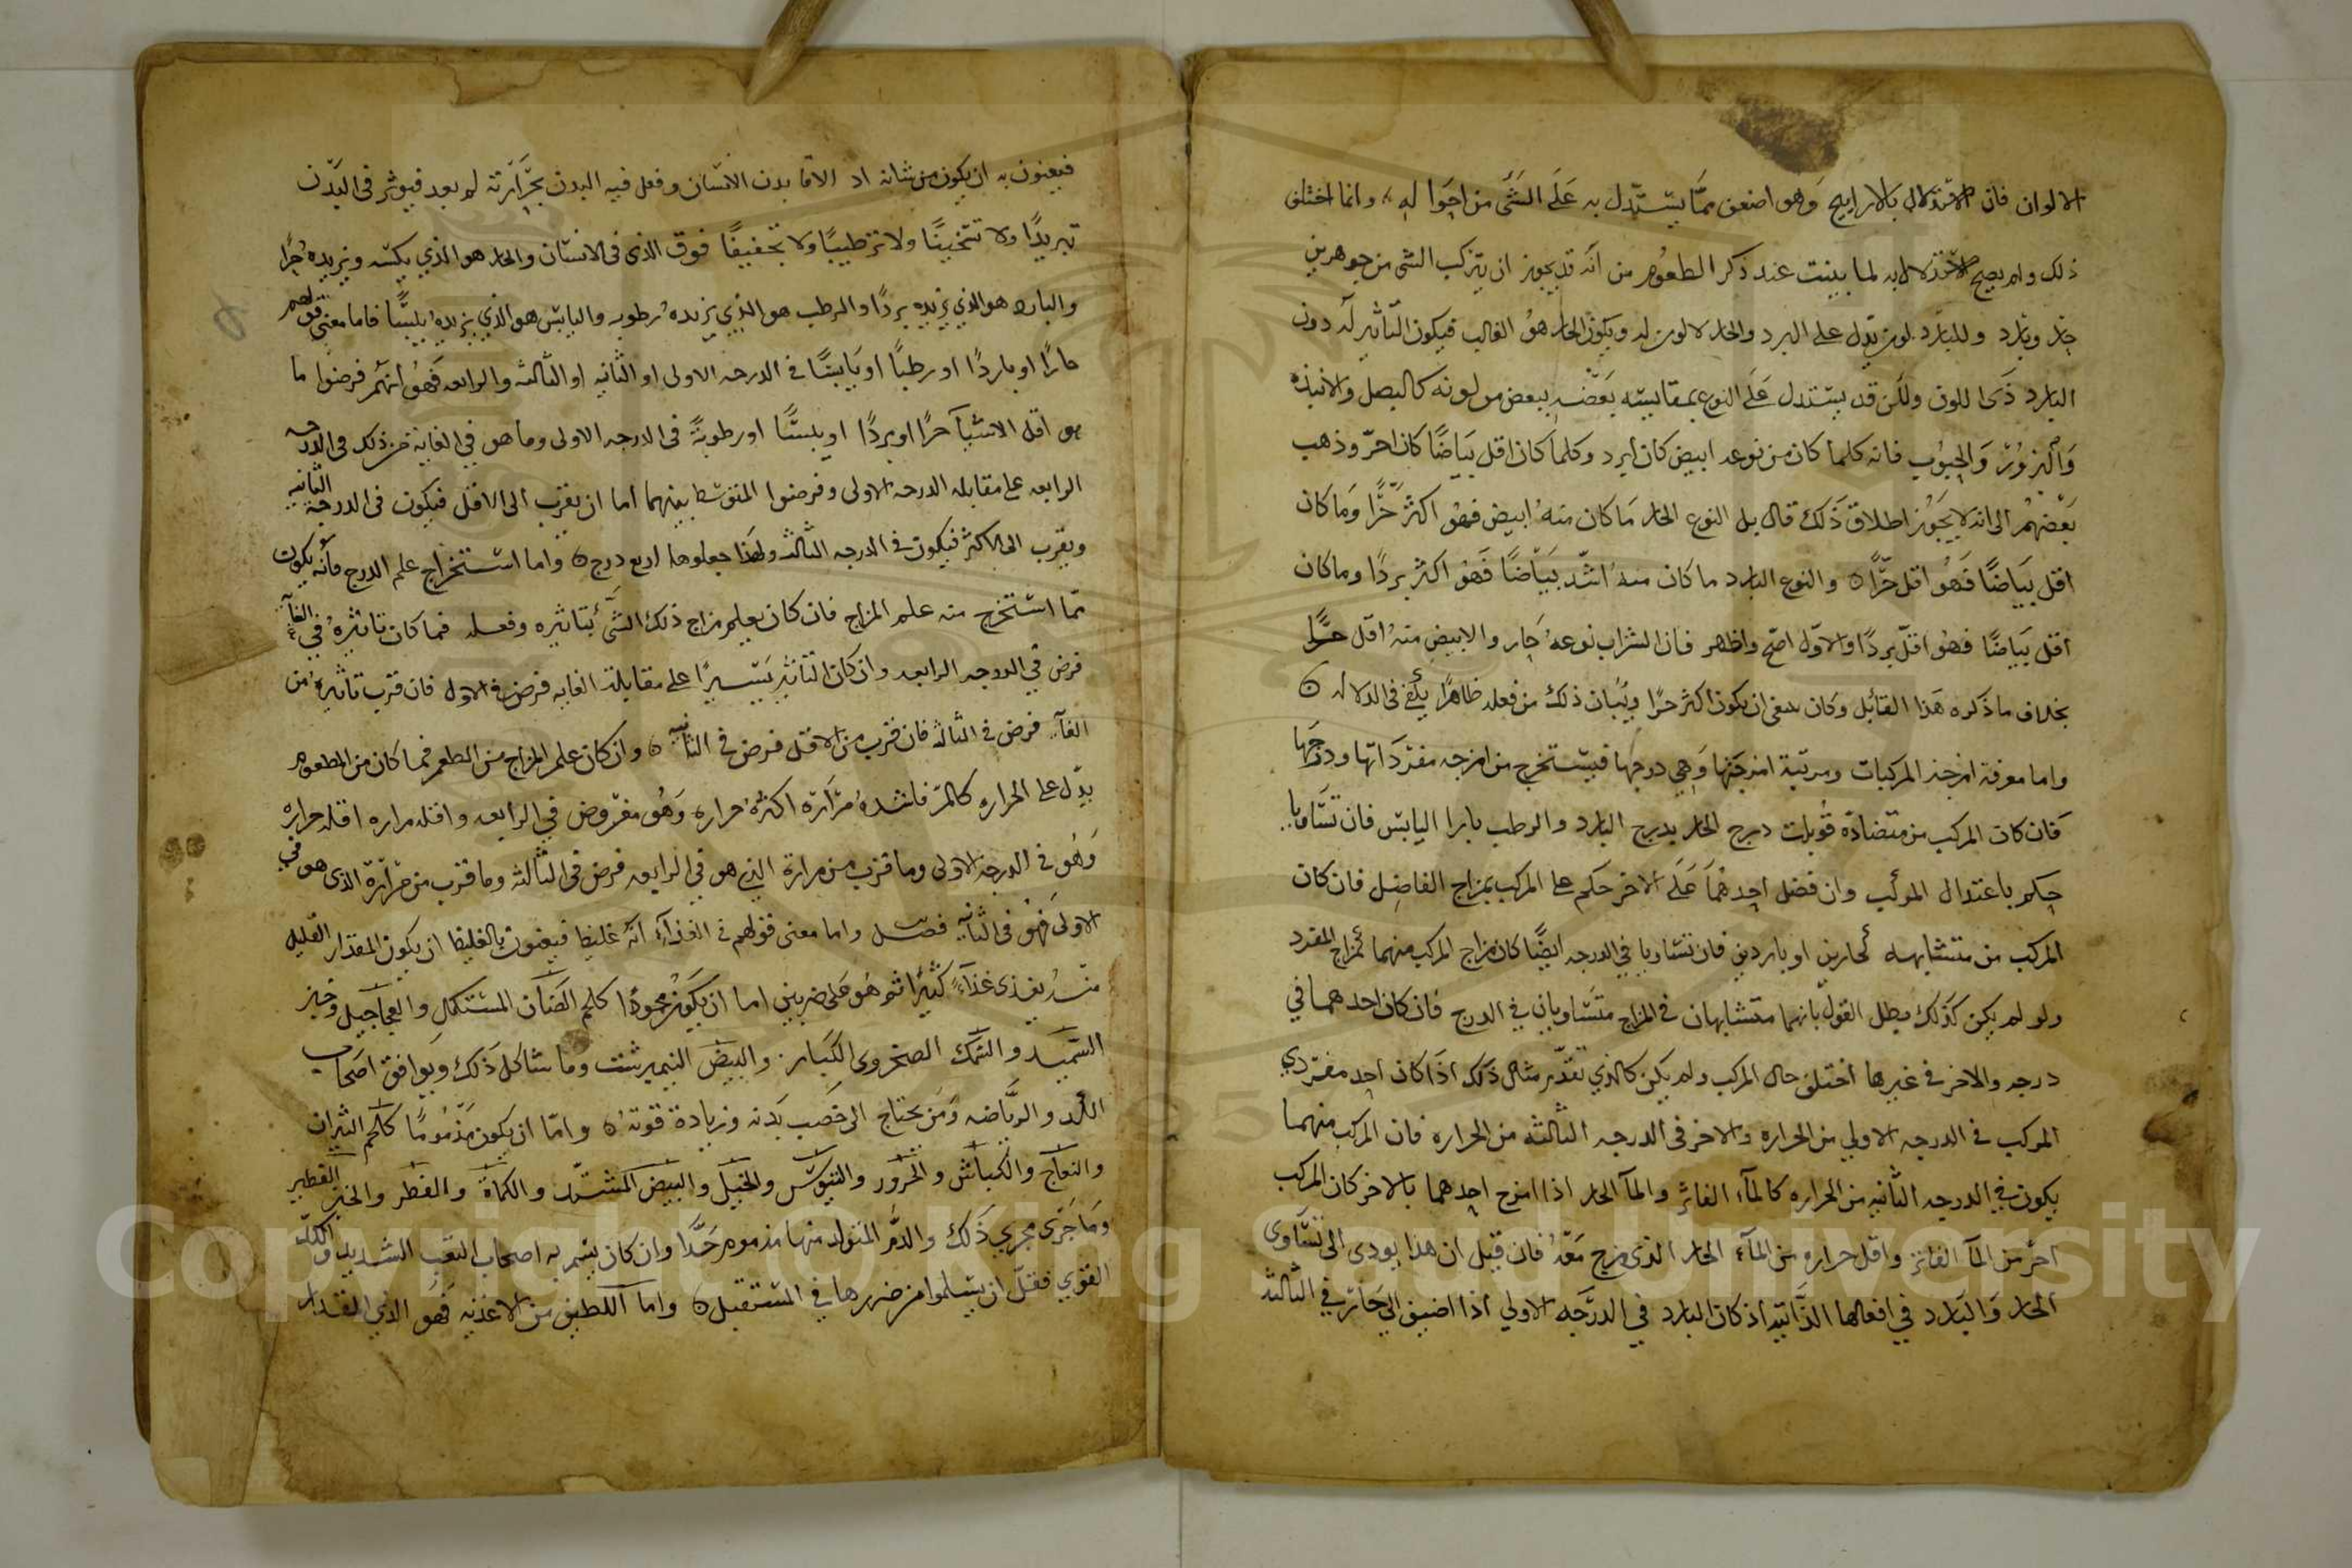 الالوان فان الاستدلال بالاراييح وهو اضعف مما يستدل به على الشى من احواله وانما اختلف
ذلك ولم يصح الاستدلال به لما بينت عند ذكر الطعوم من انه قد يجوز ان يتركب الشى من جوهرين
حار وبارد وللبارد لون يدل على البرد والحار لا لون له ويكون الحار هو الغالب فيكون التاثير له دون
البارد ذى اللون ولكن قد يستدل على النوع بمقايسه بعضه ببعض من لونه كالبصل والانبذه
والبزور والحبوب فانه كلما كان من نوعه ابيض كان ابرد وكلما كان اقل بياضا كان احر وذهب
بعضهم الى انه لا يجوز اطلاق ذلك قال بل النوع الحار ما كان منه ابيض فهو اكثر حرا وما كان
اقل بياضا فهو اقل حرا ه والنوع البارد ما كان منه اشد بياضا فهو اكثر بردا وما كان
اقل بياضا فهو اقل بردا والاول اصح واظهر فان الشراب نوعه حار والابيض منه اقل حرا
بخلاف ما ذكره هذا القائل وكان ينبغى ان يكون اكثر حرا وبيان ذلك من فعله ظاهرا يكفى فى الدلاله ه
واما معرفة امزجة المركبات ومرتبة امزجتها وهى درجها فيستخرج من امزجه مفرداتها ودرجها
فان كان المركب من متضادة قوبلت درج الحار بدرج البارد والرطب بازا اليابس فان تساويا
حكم باعتدال المركب وان فضل احدهما على الاخر حكم على المركب بمزاج الفاضل فان كان
المركب من متشابهه كحارين او باردين فان تساويا فى الدرجه ايضا كان مزاج المركب منهما كمزاج المفرد
ولو لم يكن كذلك بطل القول بانهما متشابهان فى المزاج متساويان في الدرج فان كان احدهما في
درجه والاخر فى غيرها اختلف حال المركب ولم يكن كالذي تقدم مثال ذلك اذا كان احد مفردي
المركب فى الدرجه الاولي من الحراره والاخر فى الدرجه الثالثه من الحراره فان المركب منهما
يكون في الدرجه الثانيه من الحراره كالمآء الفاتر والمآ الحار اذا امزج احدهما بالاخر كان المركب
احر من المآ الفاتر واقل حراره من المآء الحار الذى مزج معه فان قيل ان هذا يودى الى تساوى
الحار والبارد في افعالها الذاتيه اذ كان البارد في الدرجه الاولي اذا اضيف الي حار في الثالثه
فيعنون به ان يكون من شانه اذ الاقا بدن الانسان وفعل فيه البدن بحرارته لم يعد فيوثر فى البدن
تبريدا ولا تسخينا ولا ترطيبا ولا تجفيفا فوق الذى فى الانسان والحار هو الذي يكسبه ويزيده حرا
والبارد هو الذي يزيده بردا والرطب هو الذي يزيده رطوبه واليابس هو الذي يزيده يبسا فاما معنى قولهم
حارا او باردا او رطبا او يابسا فى الدرجه الاولى او الثانيه او الثالثه والرابعه فهو انهم فرضوا ما
هو اقل الاشيآ حرا او بردا او يبسا او رطوبة فى الدرجه الاولى وما هو في الغاية من ذلك فى الدرجه
الرابعه على مقابله الدرجه الاولى وفرضوا المتوسط بينهما اما ان يقرب الى الاقل فيكون فى الدرجة الثانيه
ويقرب الى الاكثر فيكون فى الدرجه الثالثه ولهذا جعلوها اربع درج ه واما استخراج علم الدرج فانه يكون
مما استخرج منه علم المزاج فان كان يعلم مزاج ذلك الشئ بتاثيره وفعله فما كان تاثيره في الغايه
فرض في الدرجه الرابعه وان كان التاثير يسيرا على مقابلة الغايه فرض فى الاول فان قرب تاثيره من
الغايه فرض فى الثالثه فان قرب من الاقل فرض فى الثانيه ه وان كان علم المزاج من الطعم فما كان من الطعوم
يدل على الحراره كالمر فاشده مرارة اكثره حرارة وهو مفروض في الرابعه واقله مراره اقله حراره
وهو فى الدرجة الاولى وما قرب من مرارة الذي هو في الرابعه فرض فى الثالثه وما قرب من مرارة الذى هو في
الاولى فهو فى الثانيه فصل واما معنى قولهم فى الغذآء انه غليظ فيعنون بالغليظ ان يكون المقدار القليل
منه يغذى غذآء كثيرا ثم هو على ضربين اما ان يكون محمودا كلحم الضان المستكمل والعجاجيل وخبز
السميد والسمك الصخرى الكبار والبيض النيمبرشت وما شاكل ذلك ويوافق اصحاب
الكد والرياضه ومن يحتاج الى خصب بدنه وزيادة قوته ه واما ان يكون مذموما كلحم الثيران
والنعاج والكباش والجزور والتيوس والخيل والبيض المشتد والكماة والفطر والخبز الفطير
وما جرى مجرى ذلك والدم المتولد منها مذموم جدا وان كان يتم به اصحاب التعب الشديد والكد
القوي فقل ان يسلموا من ضررها في المستقبل ه واما اللطيف من الاغذيه فهو الذي المقدار